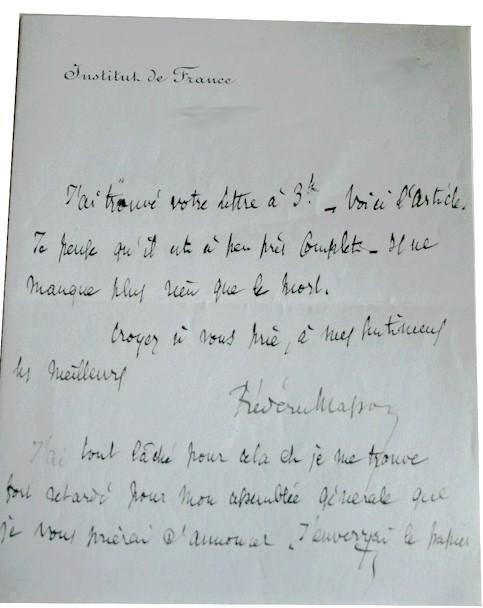 Institut de France
J'ai trouvé votre lettre à 3h. - Voici l'article.
Je pense qu'il est à peu près complet - Il ne
manque plus rien que le mort.
Croyez je vous prie, à mes sentiments
les meilleurs
Frédéric Masson
J'ai tout lâché pour cela et je me trouve
fort retardé pour mon assemblée générale que
je vous prierai d'annoncer. J'enverrai le papier